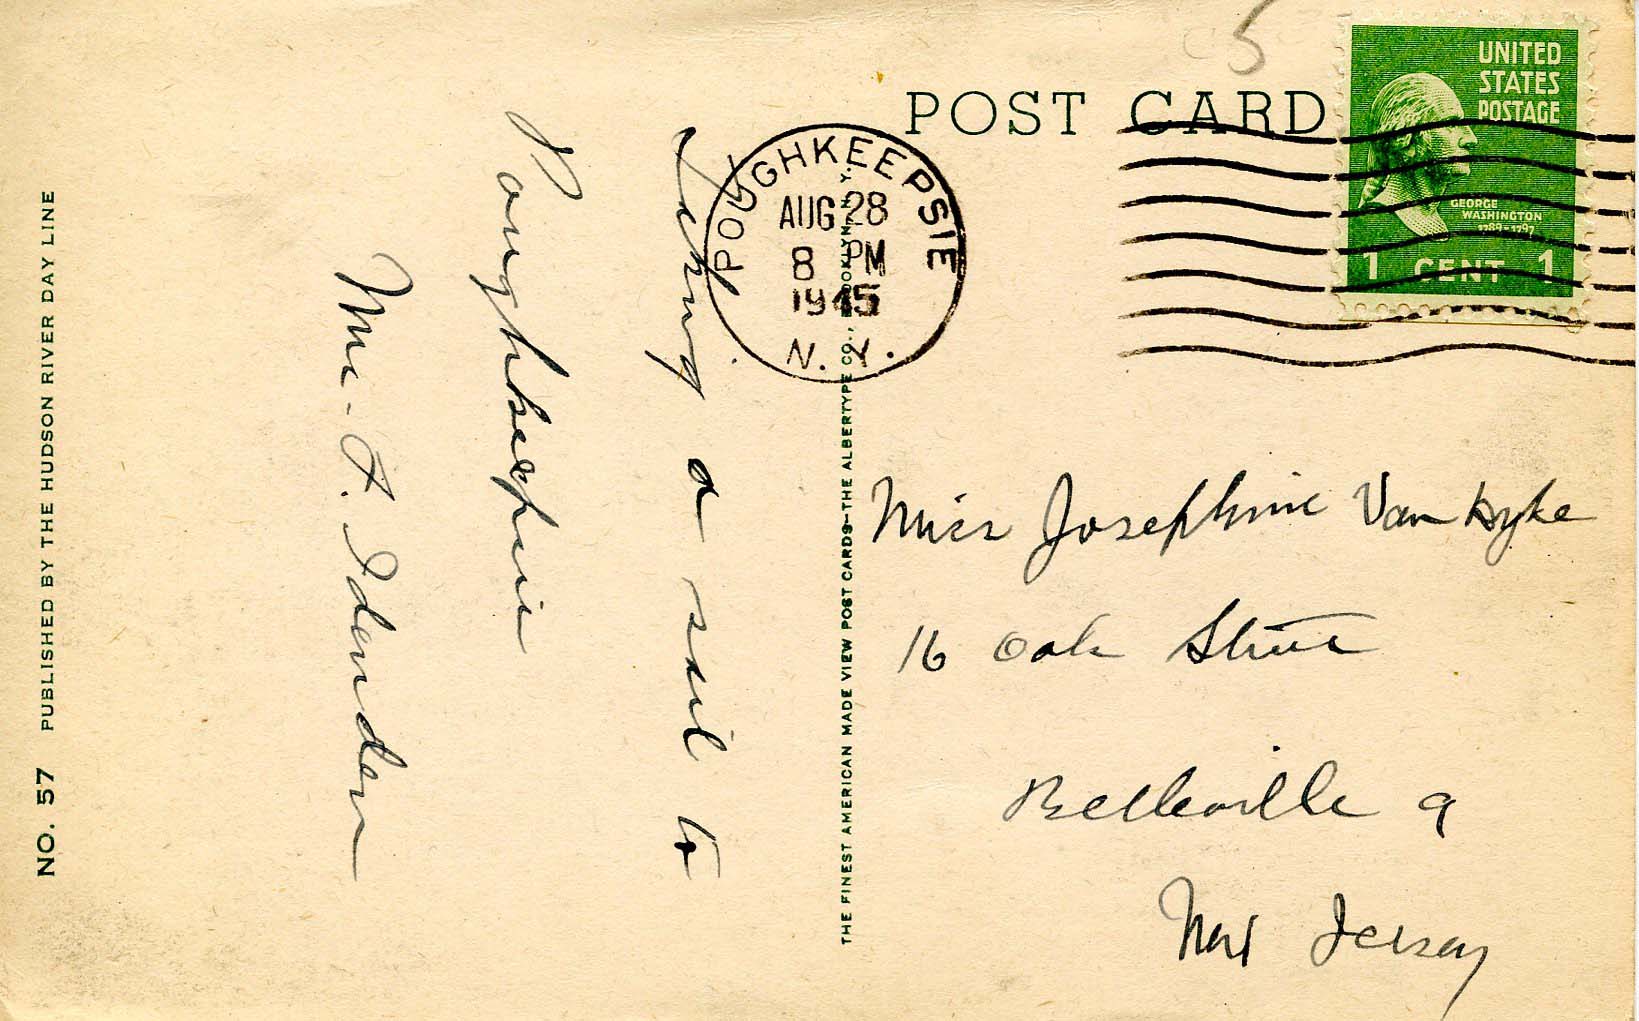 POST CARD
UNITED
STATES
POSTAGE
GEORGE
WASHINGTON
1789-1797
1 CENT 1
5
POUGHKEEPSIE
AUG 28
8 PM
1945
N. Y.
Taking a sail to
Poughkeepsie
Mrs. F.
Miss Josephine Van Dyke
16 Oak Street
Belleville 9
New Jersey
NO. 57 PUBLISHED BY THE HUDSON RIVER DAY LINE
THE FINEST AMERICAN MADE VIEW POST CARDS—THE ALBERTYPE CO., BROOKLYN, N. Y.